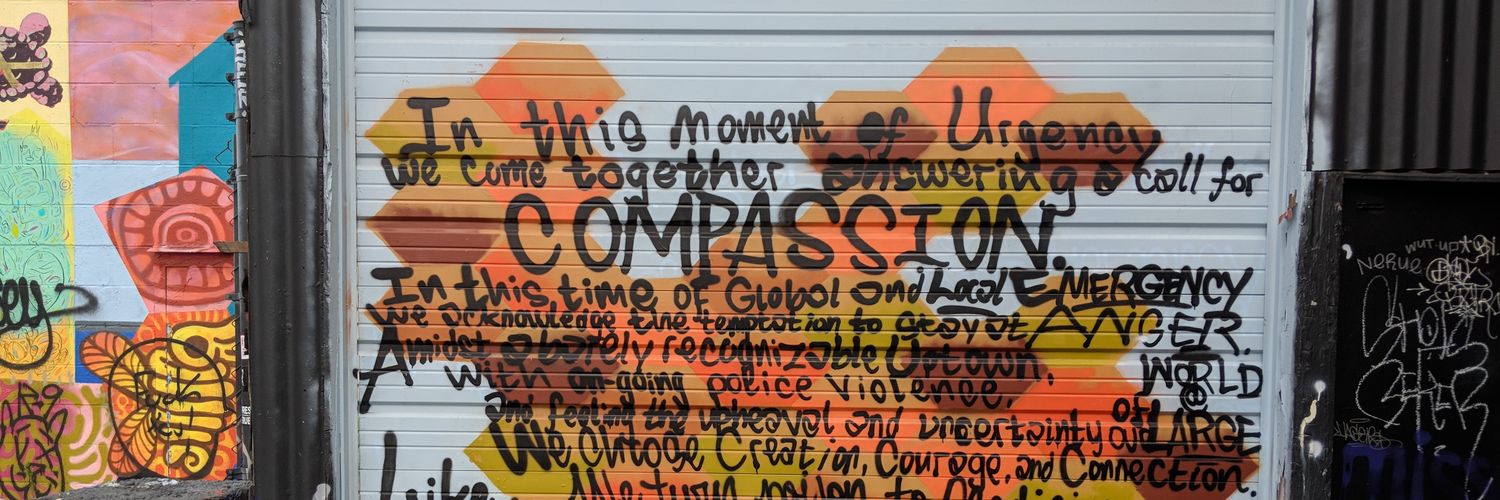 In this moment of Urgency
we come together answering a call for
COMPASSION.
In this time of Global and Local EMERGENCY
we acknowledge the temptation to stay at ANGER.
Amidst a barely recognizable Uptown,
with on-going police violence,
and feeling the upheaval and uncertainty of our WORLD @ LARGE
We Choose Creation, Courage, and Connection.
Like We turn to
WUT-UP
NERUE
miss